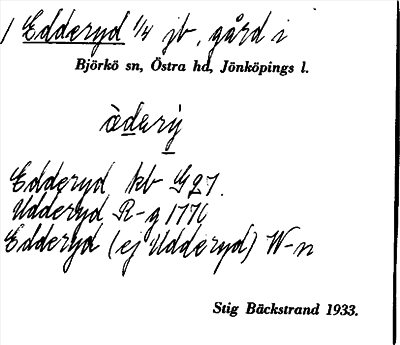 / Edderyd 1/4 jb, gård i
Björkö sn, Östra hd, Jönköpings l.
àdarẏ
Edderyd kb G 27.
Udderyd R-g 1776
Edderyd (ej Udderyd) W-n
Stig Bäckstrand 1933.